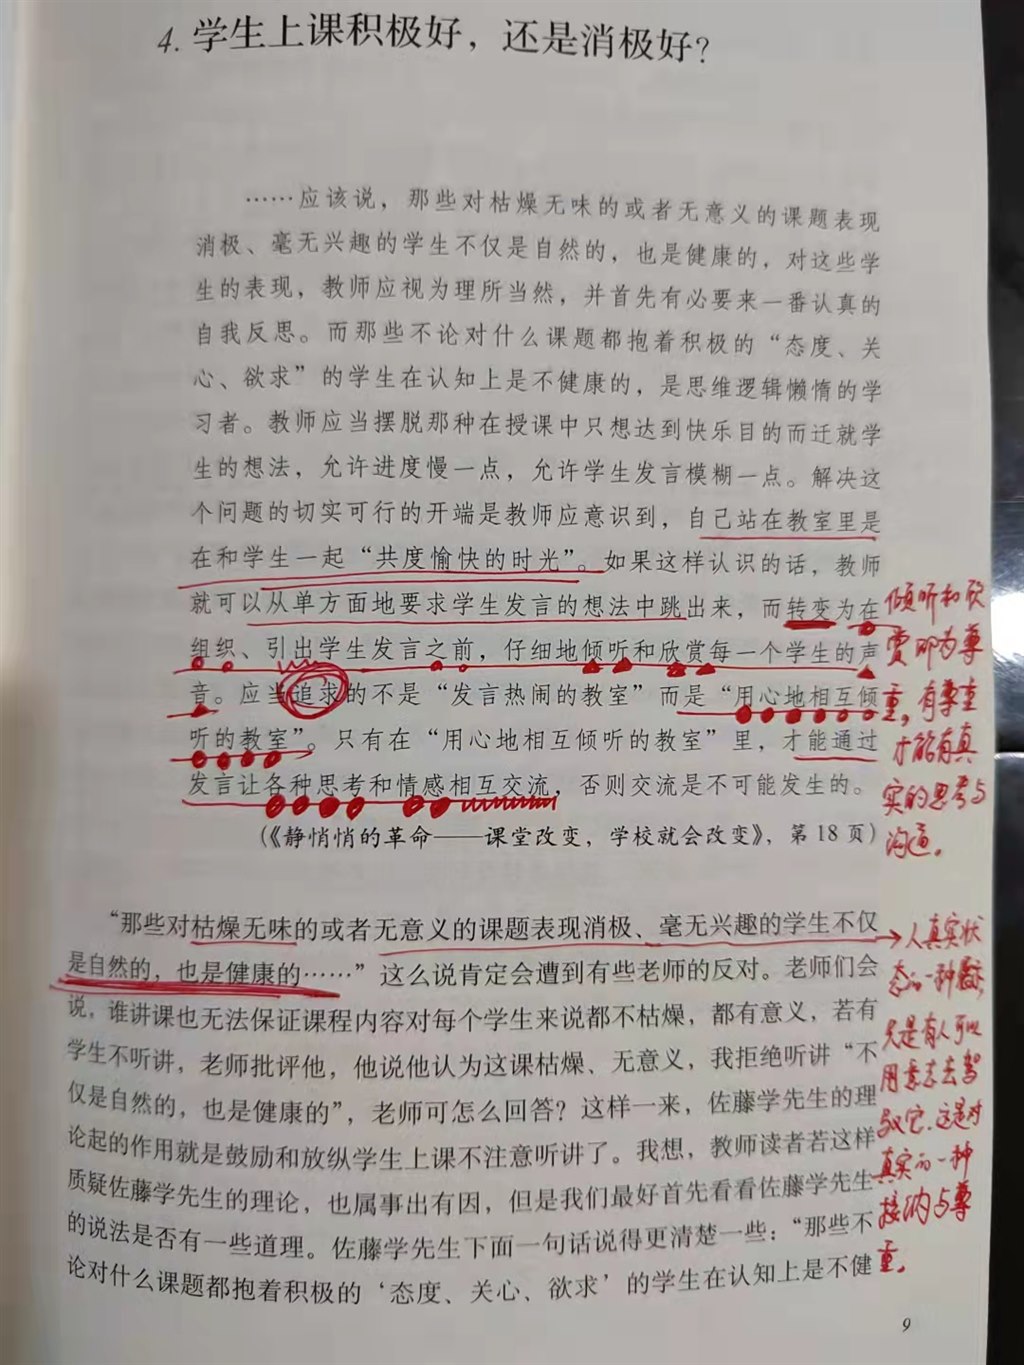 4. 学生上课积极好，还是消极好？
……应该说，那些对枯燥无味的或者无意义的课题表现
消极、毫无兴趣的学生不仅是自然的，也是健康的，对这些学
生的表现，教师应视为理所当然，并首先有必要来一番认真的
自我反思。而那些不论对什么课题都抱着积极的“态度、关
心、欲求”的学生在认知上是不健康的，是思维逻辑懒惰的学
习者。教师应当摆脱那种在授课中只想达到快乐目的而迁就学
生的想法，允许进度慢一点，允许学生发言模糊一点。解决这
个问题的切实可行的开端是教师应意识到，自己站在教室里是
在和学生一起“共度愉快的时光”。如果这样认识的话，教师
就可以从单方面地要求学生发言的想法中跳出来，而转变为在
组织、引出学生发言之前，仔细地倾听和欣赏每一个学生的声
音。应当追求的不是“发言热闹的教室”而是“用心地相互倾
听的教室”。只有在“用心地相互倾听的教室”里，才能通过
发言让各种思考和情感相互交流，否则交流是不可能发生的。
（《静悄悄的革命——课堂改变，学校就会改变》，第 18 页）
倾听和欣
赏即为尊
重，有尊重
才能有真
实的思考与
沟通。
“那些对枯燥无味的或者无意义的课题表现消极、毫无兴趣的学生不仅
是自然的，也是健康的……”这么说肯定会遭到有些老师的反对。老师们会
说，谁讲课也无法保证课程内容对每个学生来说都不枯燥，都有意义，若有
学生不听讲，老师批评他，他说他认为这课枯燥、无意义，我拒绝听讲“不
仅是自然的，也是健康的”，老师可怎么回答？这样一来，佐藤学先生的理
论起的作用就是鼓励和放纵学生上课不注意听讲了。我想，教师读者若这样
质疑佐藤学先生的理论，也属事出有因，但是我们最好首先看看佐藤学先生
的说法是否有一些道理。佐藤学先生下面一句话说得更清楚一些：“那些不
论对什么课题都抱着积极的‘态度、关心、欲求’的学生在认知上是不健
人真实状
态的一种
只是有人可以
用意志去驾
驭它，这是对
真实的一种
接纳与尊
重。
9